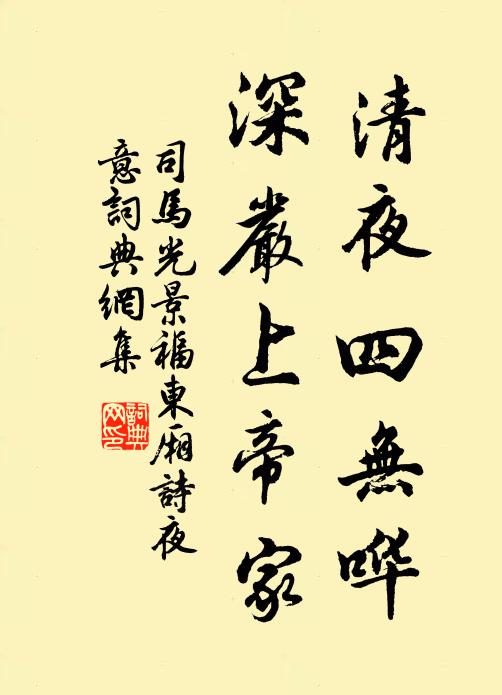 清夜四無哗
深嚴上帝家
司馬光景福東厢詩夜
意詞典網集
詞典网印